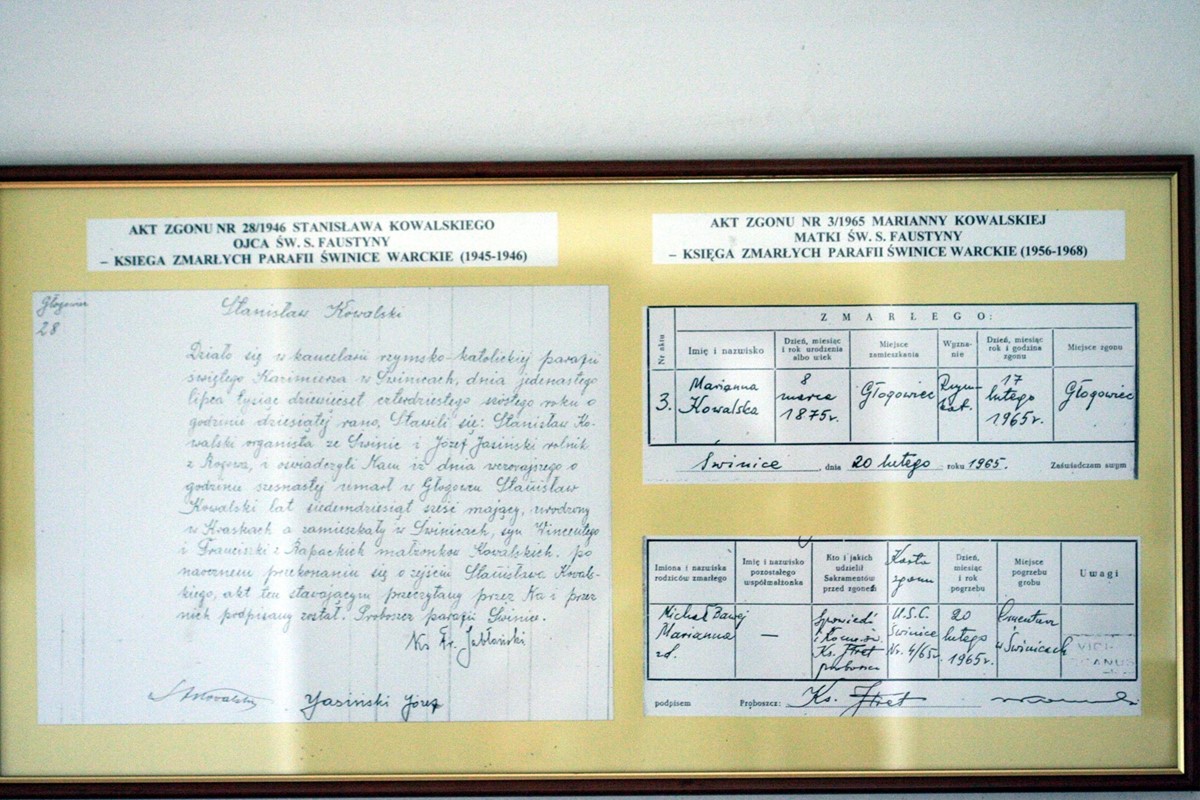 AKT ZGONU NR 28/1946 STANISŁAWA KOWALSKIEGO
OJCA ŚW. S. FAUSTYNY
– KSIEGA ZMARŁYCH PARAFII ŚWINICE WARCKIE (1945-1946)
Głogowiec
28
Stanisław Kowalski
Działo się w kancelarii rzymsko-katolickiej parafii
świętego Kazimierza w Świnicach, dnia jedenastego
lipca tysiąc dziewiećset czterdziestego szóstego roku o
godzinie dziesiątej rano, Stawili się: Stanisław Ko-
walski organista ze Świnic i Józef Jasiński rolnik
z Rogowa, i oświadczyli Nam iż dnia wczorajszego o
godzinie szesnastej umarł w Głogowcu Stanisław
Kowalski lat siedemdziesiąt sześć mający, urodzony
w Kraskach a zamieszkały w Świnicach, syn Wincentego
i Franciszki z Rapackich małżonków Kowalskich. Po
naocznem przekonaniu się o zejściu Stanisława Kowal-
skiego, akt ten stawającym przeczytany przez Nas i przez
nich podpisany został. Proboszcz parafii Świnice.
Ks. Fr. Jabłoński
St Kowalski Jasiński Józef
AKT ZGONU NR 3/1965 MARIANNY KOWALSKIEJ
MATKI ŚW. S. FAUSTYNY
– KSIĘGA ZMARŁYCH PARAFII ŚWINICE WARCKIE (1956-1968)
ZMARŁEGO:
Nr aktu
Imię i nazwisko
Dzień, miesiąc
i rok urodzenia
albo wiek
Miejsce
zamieszkania
Wyzna-
nie
Dzień, miesiąc
rok i godzina
zgonu
Miejsce zgonu
3.
Marianna
Kowalska
8
marca
1875r.
Głogowiec
Rzym.
kat.
17
lutego
1965r.
Głogowiec
Świnice, dnia 20 lutego roku 1965. Zaświadczam swym
Imiona i nazwiska
rodziców zmarłego
Imię i nazwisko
pozostałego
współmałżonka
Kto i jakich
udzielił
Sakramentów
przed zgonem
Karta
zgonu
Dzień,
miesiąc
i rok
pogrzebu
Miejsce pogrzebu
grobu
Uwagi
Michał
Marianna
—
Spowiedź
Ks.
proboszcz
U.S.C.
Świnice
Nr. 4/65r.
20
lutego
1965r.
Cmentarz
w Świnicach
podpisem Proboszcz: Ks.